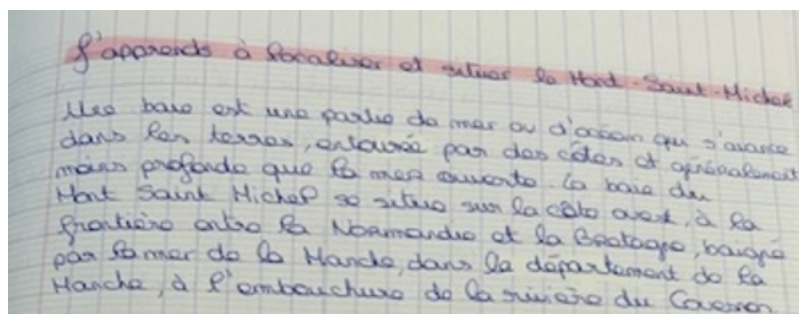 J'apprends à localiser et situer le Mont-Saint-Michel
Une baie est une partie de mer ou d'océan qui s'avance
dans les terres, entourée par des côtes et généralement
moins profonde que la mer ouverte. La baie du
Mont Saint Michel se situe sur la côte ouest, à la
frontière entre la Normandie et la Bretagne, baigné
par la mer de la Manche, dans le département de la
Manche, à l'embouchure de la rivière du Couesnon